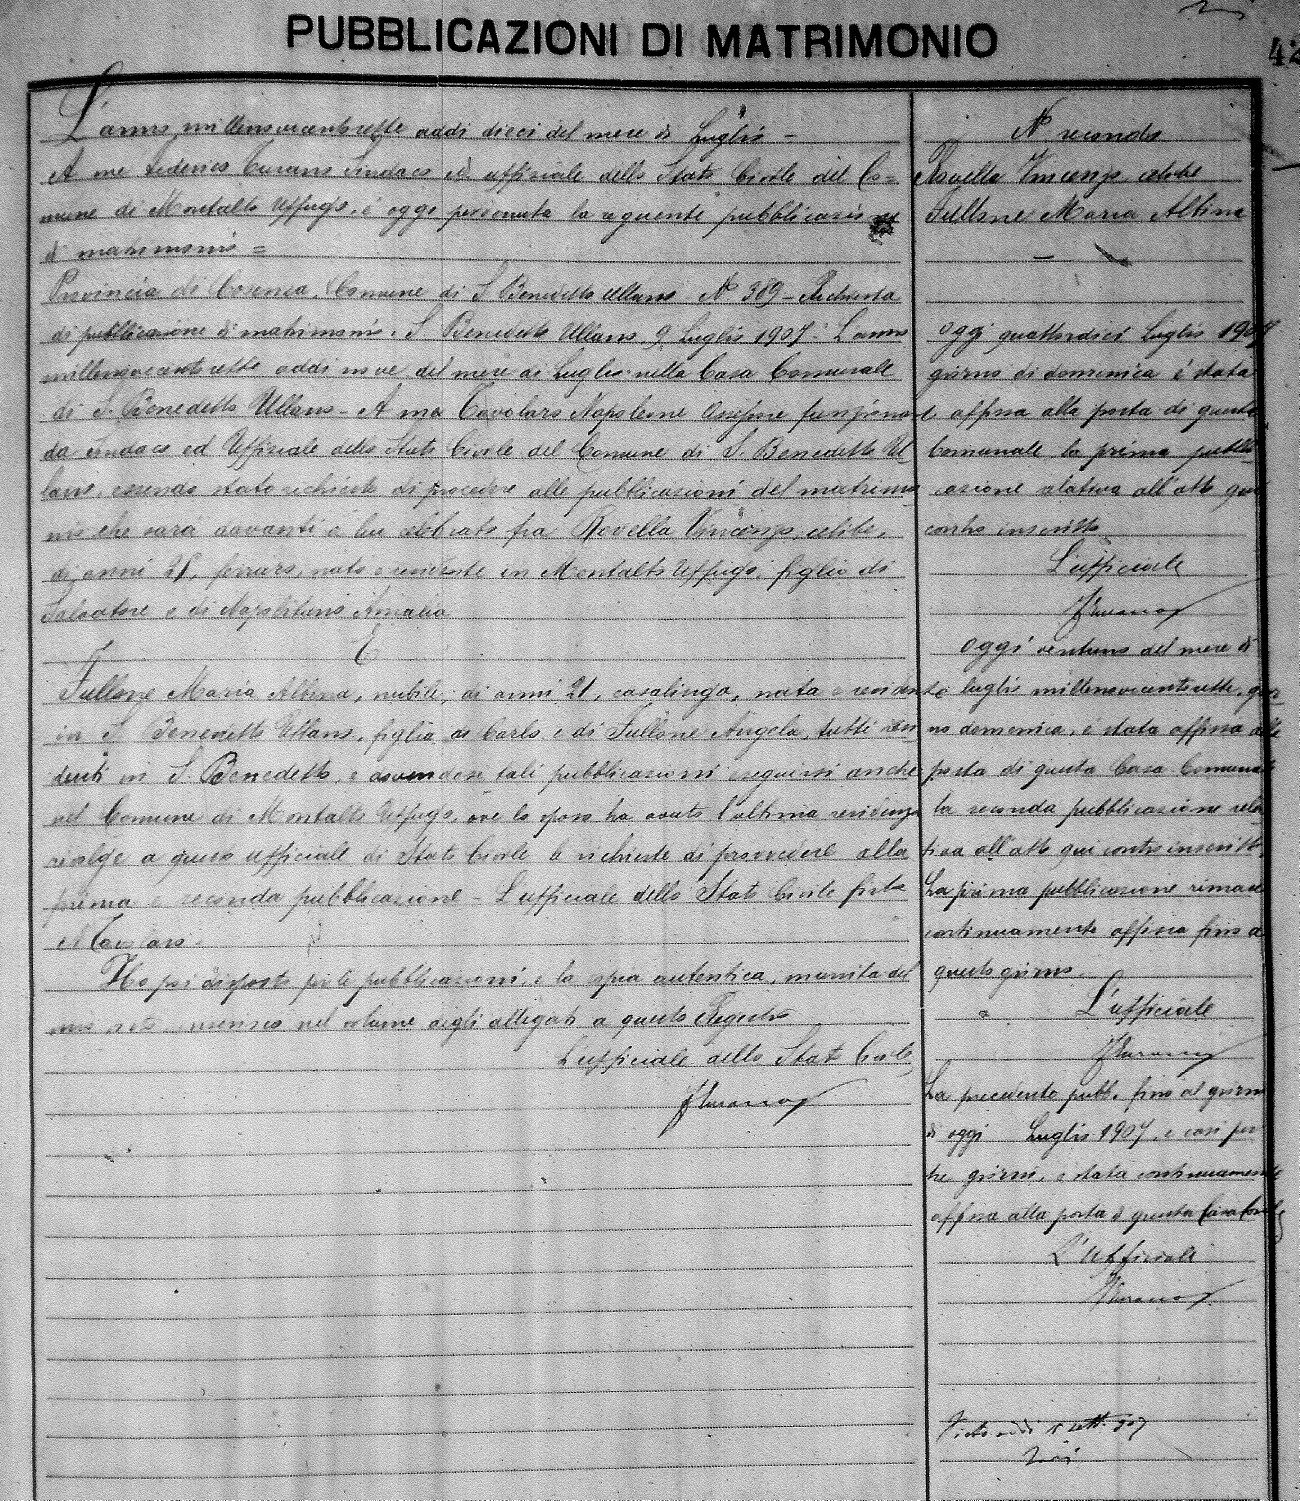 PUBBLICAZIONI DI MATRIMONIO
42
L'anno millenovecentosette addì dieci del mese di Luglio =
A me Federico Turano Sindaco ed uffiziale dello Stato Civile del Co=
mune di Montalto Uffugo, è oggi pervenuta la seguente pubblicazione
di matrimonio =
Provincia di Cosenza. Comune di S. Benedetto Ullano N° 389 - Richiesta
di pubblicazione di matrimonio. S. Benedetto Ullano 9 Luglio 1907. L'anno
millenovecentosette addì nove del mese di Luglio nella Casa Comunale
di S. Benedetto Ullano - A me Tavolaro Napoleone Assessore funzionante
da Sindaco ed Uffiziale dello Stato Civile del Comune di S. Benedetto Ul
lano, essendo stato richiesto di procedere alle pubblicazioni del matrimo
nio che sarà davanti a lui celebrato fra Rovella Vincenzo, celibe,
di anni nato e residente in Montalto Uffugo, figlio di
Salvatore e di Napolitano Amalia
E
Fullone Maria Albina, nubile, di anni 21, casalinga, nata e residente
in S. Benedetto Ullano, figlia di Carlo e di Fullone Angela, tutti resi
denti in S. Benedetto, e dovendosi tali pubblicazioni eseguirsi anche
nel Comune di Montalto Uffugo, ove lo sposo ha avuto l'ultima residenza
rivolge a questo ufficiale di Stato Civile la richiesta di provvedere alla
prima e seconda pubblicazione - L'ufficiale dello Stato Civile firto
Tavolaro.
Ho poi disposto per le pubblicazioni, e la copia autentica, munita del
mio visto inserita nel volume degli allegati a questo Registro
L'ufficiale dello Stato Civile
F Turano
N° secondo
Rovella Vincenzo celibe
Fullone Maria Albina
Oggi quattordici Luglio 1907
giorno di domenica è stata
affissa alla porta di questa
Comunale la prima pubbli
cazione relativa all'atto qui
contro inscritto
L'ufficiale
F Turano
Oggi ventuno del mese di
luglio millenovecentosette, gior
no domenica, è stata affissa alla
porta di questa Casa Comunale
la seconda pubblicazione rela
tiva all'atto qui contro inscritto.
La prima pubblicazione rimase
continuamente affissa fino a
questo giorno.
L'ufficiale
F Turano
La precedente pubb. fino al giorno
di oggi Luglio 1907, e così per
tre giorni, è stata continuamente
affissa alla porta di questa Casa Comle
L'Ufficiale
F Turano
Visto addì sett. 907